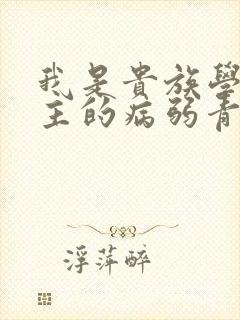 我是貴族學
主的病弱青
浮萍醉